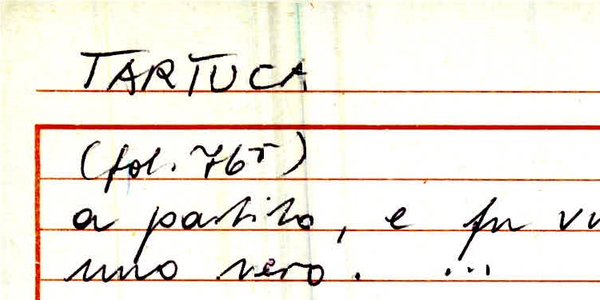 TARTUCA
(fol. 76r)
a partito, e fu vu
uno nero. ...